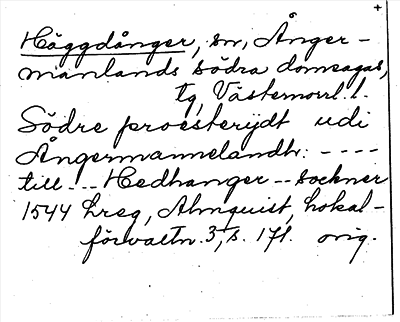 +
Häggdånger, sn, Ånger-
manlands södra domsagas,
tg, Västernorrl. l.
Södre proesterijdt udi
Ångermannelandh: ----
till -- Hedhanger -- sockner
1544 h reg, Almquist, Lokal-
förvaltn. 3, s. 171. orig.